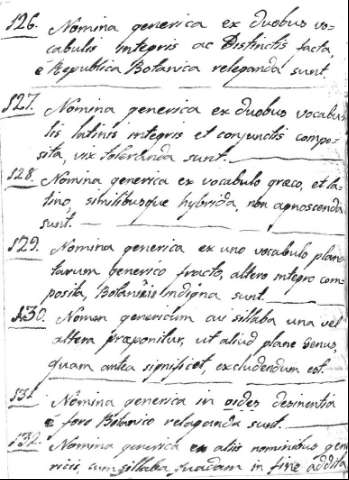 126. Nomina generica ex duobus vo-
cabulis integris ac distinctis facta
è Republica Botanica releganda sunt.
127. Nomina generica ex duobus vocabu
lis latinis integris et conjunctis compo-
sita, vix toleranda sunt.
128. Nomina generica ex vocabulo græco, et la-
tino, similibusque hybrida non agnoscenda
sunt.
129. Nomina generica ex uno vocabulo plan
tarum generico fracto, altero integro com
posita, Botanicis indigna sunt.
130. Nomen genericum cui sillaba una vel
altera præponitur, ut aliud plane genus,
quam antea significet, excludendum est.
131 Nomina generica in oides desinentia
è foro Botanico releganda sunt.
132. Nomina generica ex aliis nominibus gene
ricis, cum sillaba quadam in fine addita